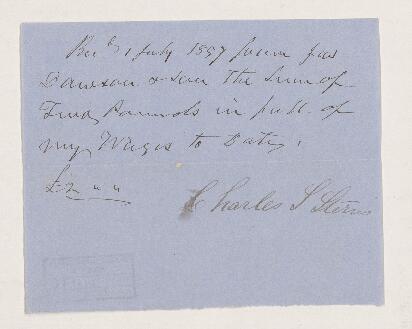 Recd 1 July 1857 from Jas
Dawson & son the Sum of
Two Pounds in full of
my Wages to Date,
£2 " "
Charles S Sterns